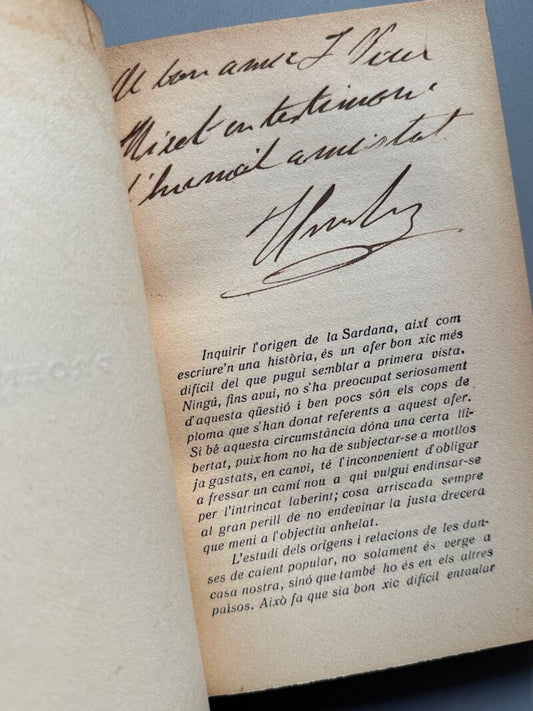 Al bon amic J
Miret en testimoni
d'humil amistat
Inquirir l'origen de la Sardana, així com
escriure'n una història, és un afer bon xic més
difícil del que pugui semblar a primera vista.
Ningú, fins avui, no s'ha preocupat seriosament
d'aquesta qüestió i ben pocs són els cops de
ploma que s'han donat referents a aquest afer.
Si bé aquesta circumstància dóna una certa lli-
bertat, puix hom no ha de subjectar-se a motllos
ja gastats, en canvi, té l'inconvenient d'obligar
a fressar un camí nou a qui vulgui endinsar-se
per l'intrincat laberint; cosa arriscada sempre
al gran perill de no endevinar la justa drecera
que meni a l'objectiu anhelat.
L'estudi dels orígens i relacions de les dan-
ses de caient popular, no solament és verge a
casa nostra, sinó que també ho és en els altres
països. Això fa que sia bon xic difícil entaular